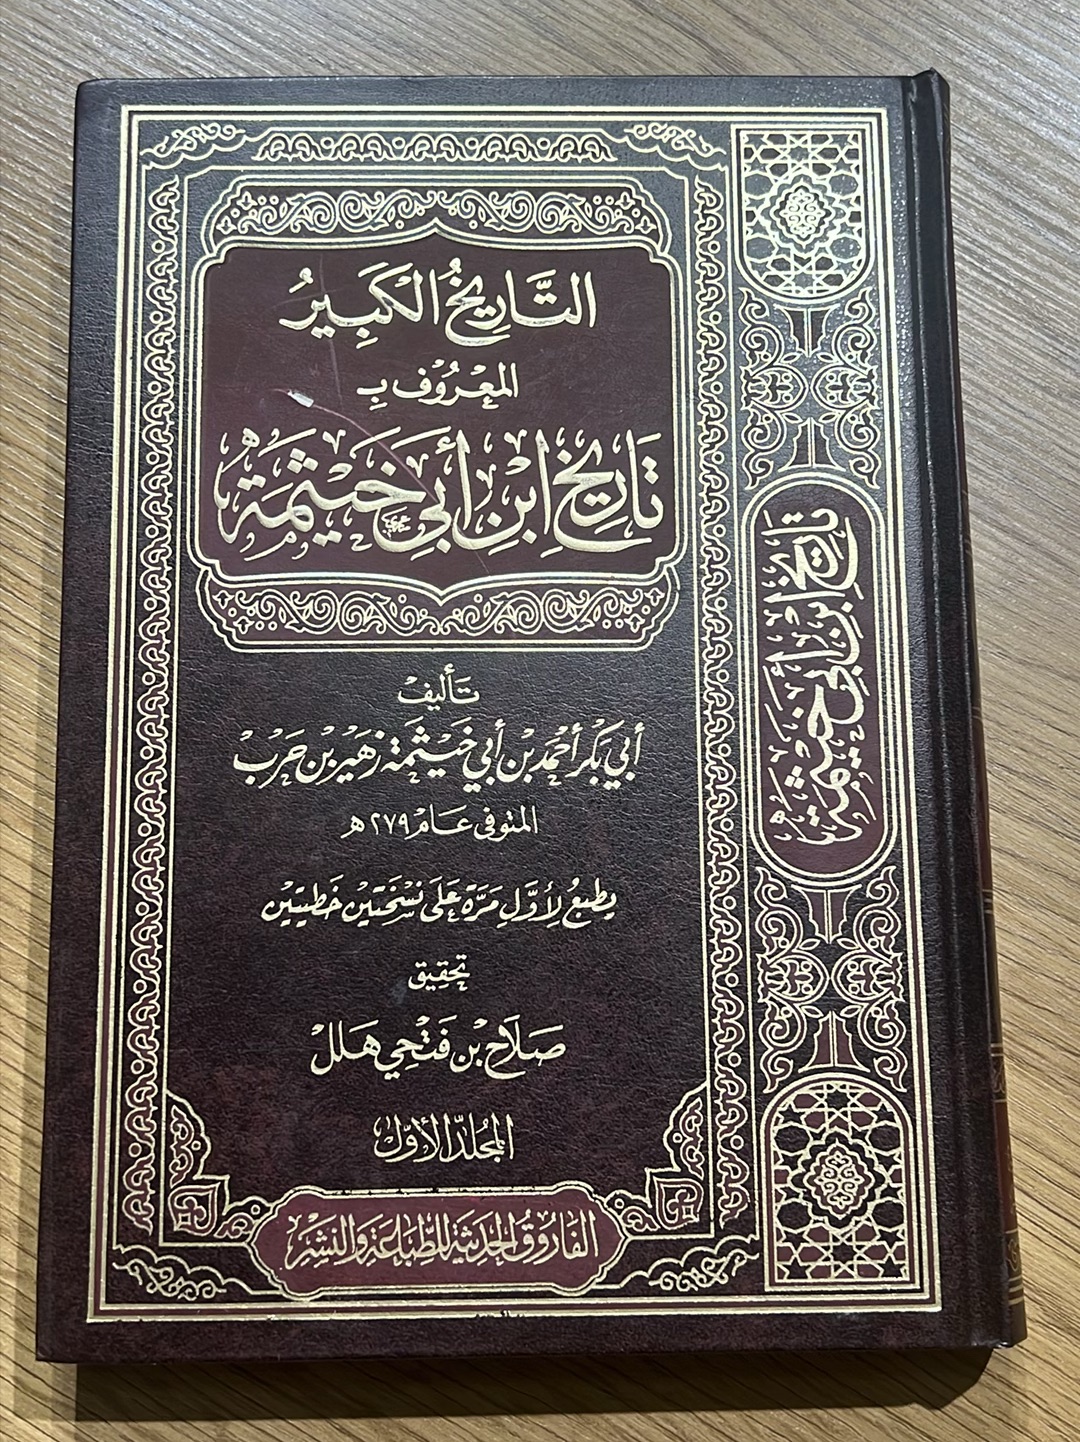 التَّارِيخُ الكَبِيرُ
المَعْرُوف بِ
تَارِيخِ ابْنِ أَبِي خَيْثَمَةَ
تَأليف
أبي بَكر أحْمَد بْن أبي خَيْثَمَة زُهَيْر بْن حَرْب
المتوفى عَام ٢٧٩ هـ
يطبعُ لأوَّلِ مَرَّة عَلَى نُسْخَتَيْن خَطيتَيْن
تحقيق
صَلَاح بْن فَتْحِي هَلَل
المجلّد الأوّل
الفَارُوقُ الحَدِيثَة لِلطِّبَاعَة وَالنَّشْر
تَارِيخ ابْن أَبِي خَيْثَمَة